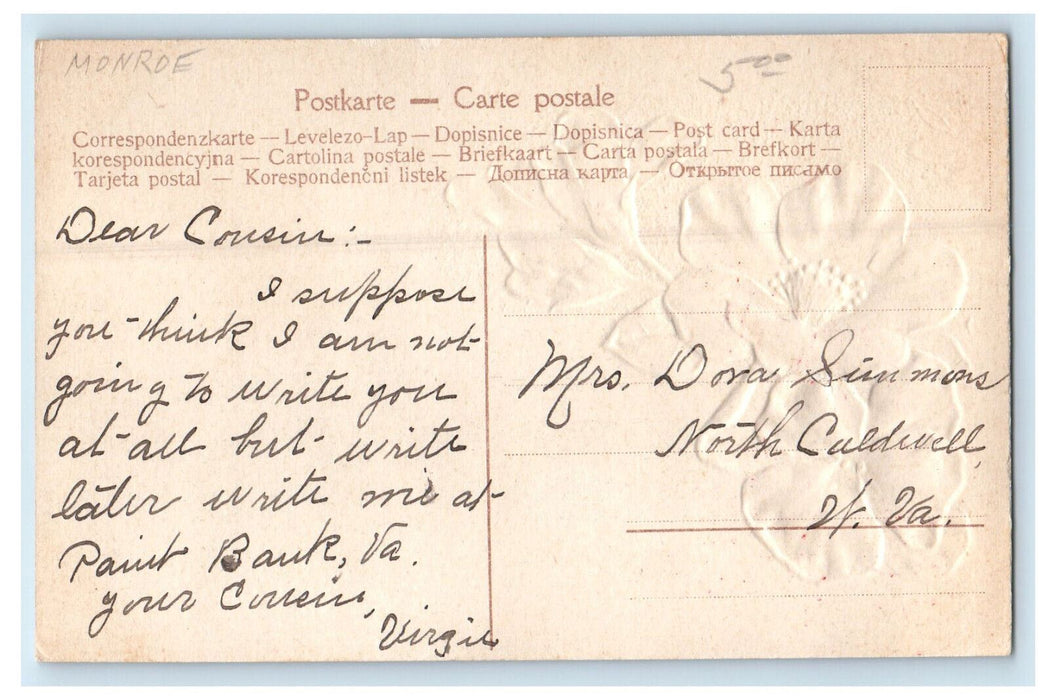 MONROE
5.00
Postkarte — Carte postale
Correspondenzkarte — Levelezo-Lap — Dopisnice — Dopisnica — Post card — Karta
korespondencyjna — Cartolina postale — Briefkaart — Carta postala — Brefkort —
Tarjeta postal — Korespondenčni listek — Дописна карта — Открытое письмо
Dear Cousin:-
I suppose
you think I am not
going to write you
at all but write
later write me at
Paint Bank, Va.
your Cousin,
Virgie
Mrs. Dora Simmons
North Caldwell,
W. Va.